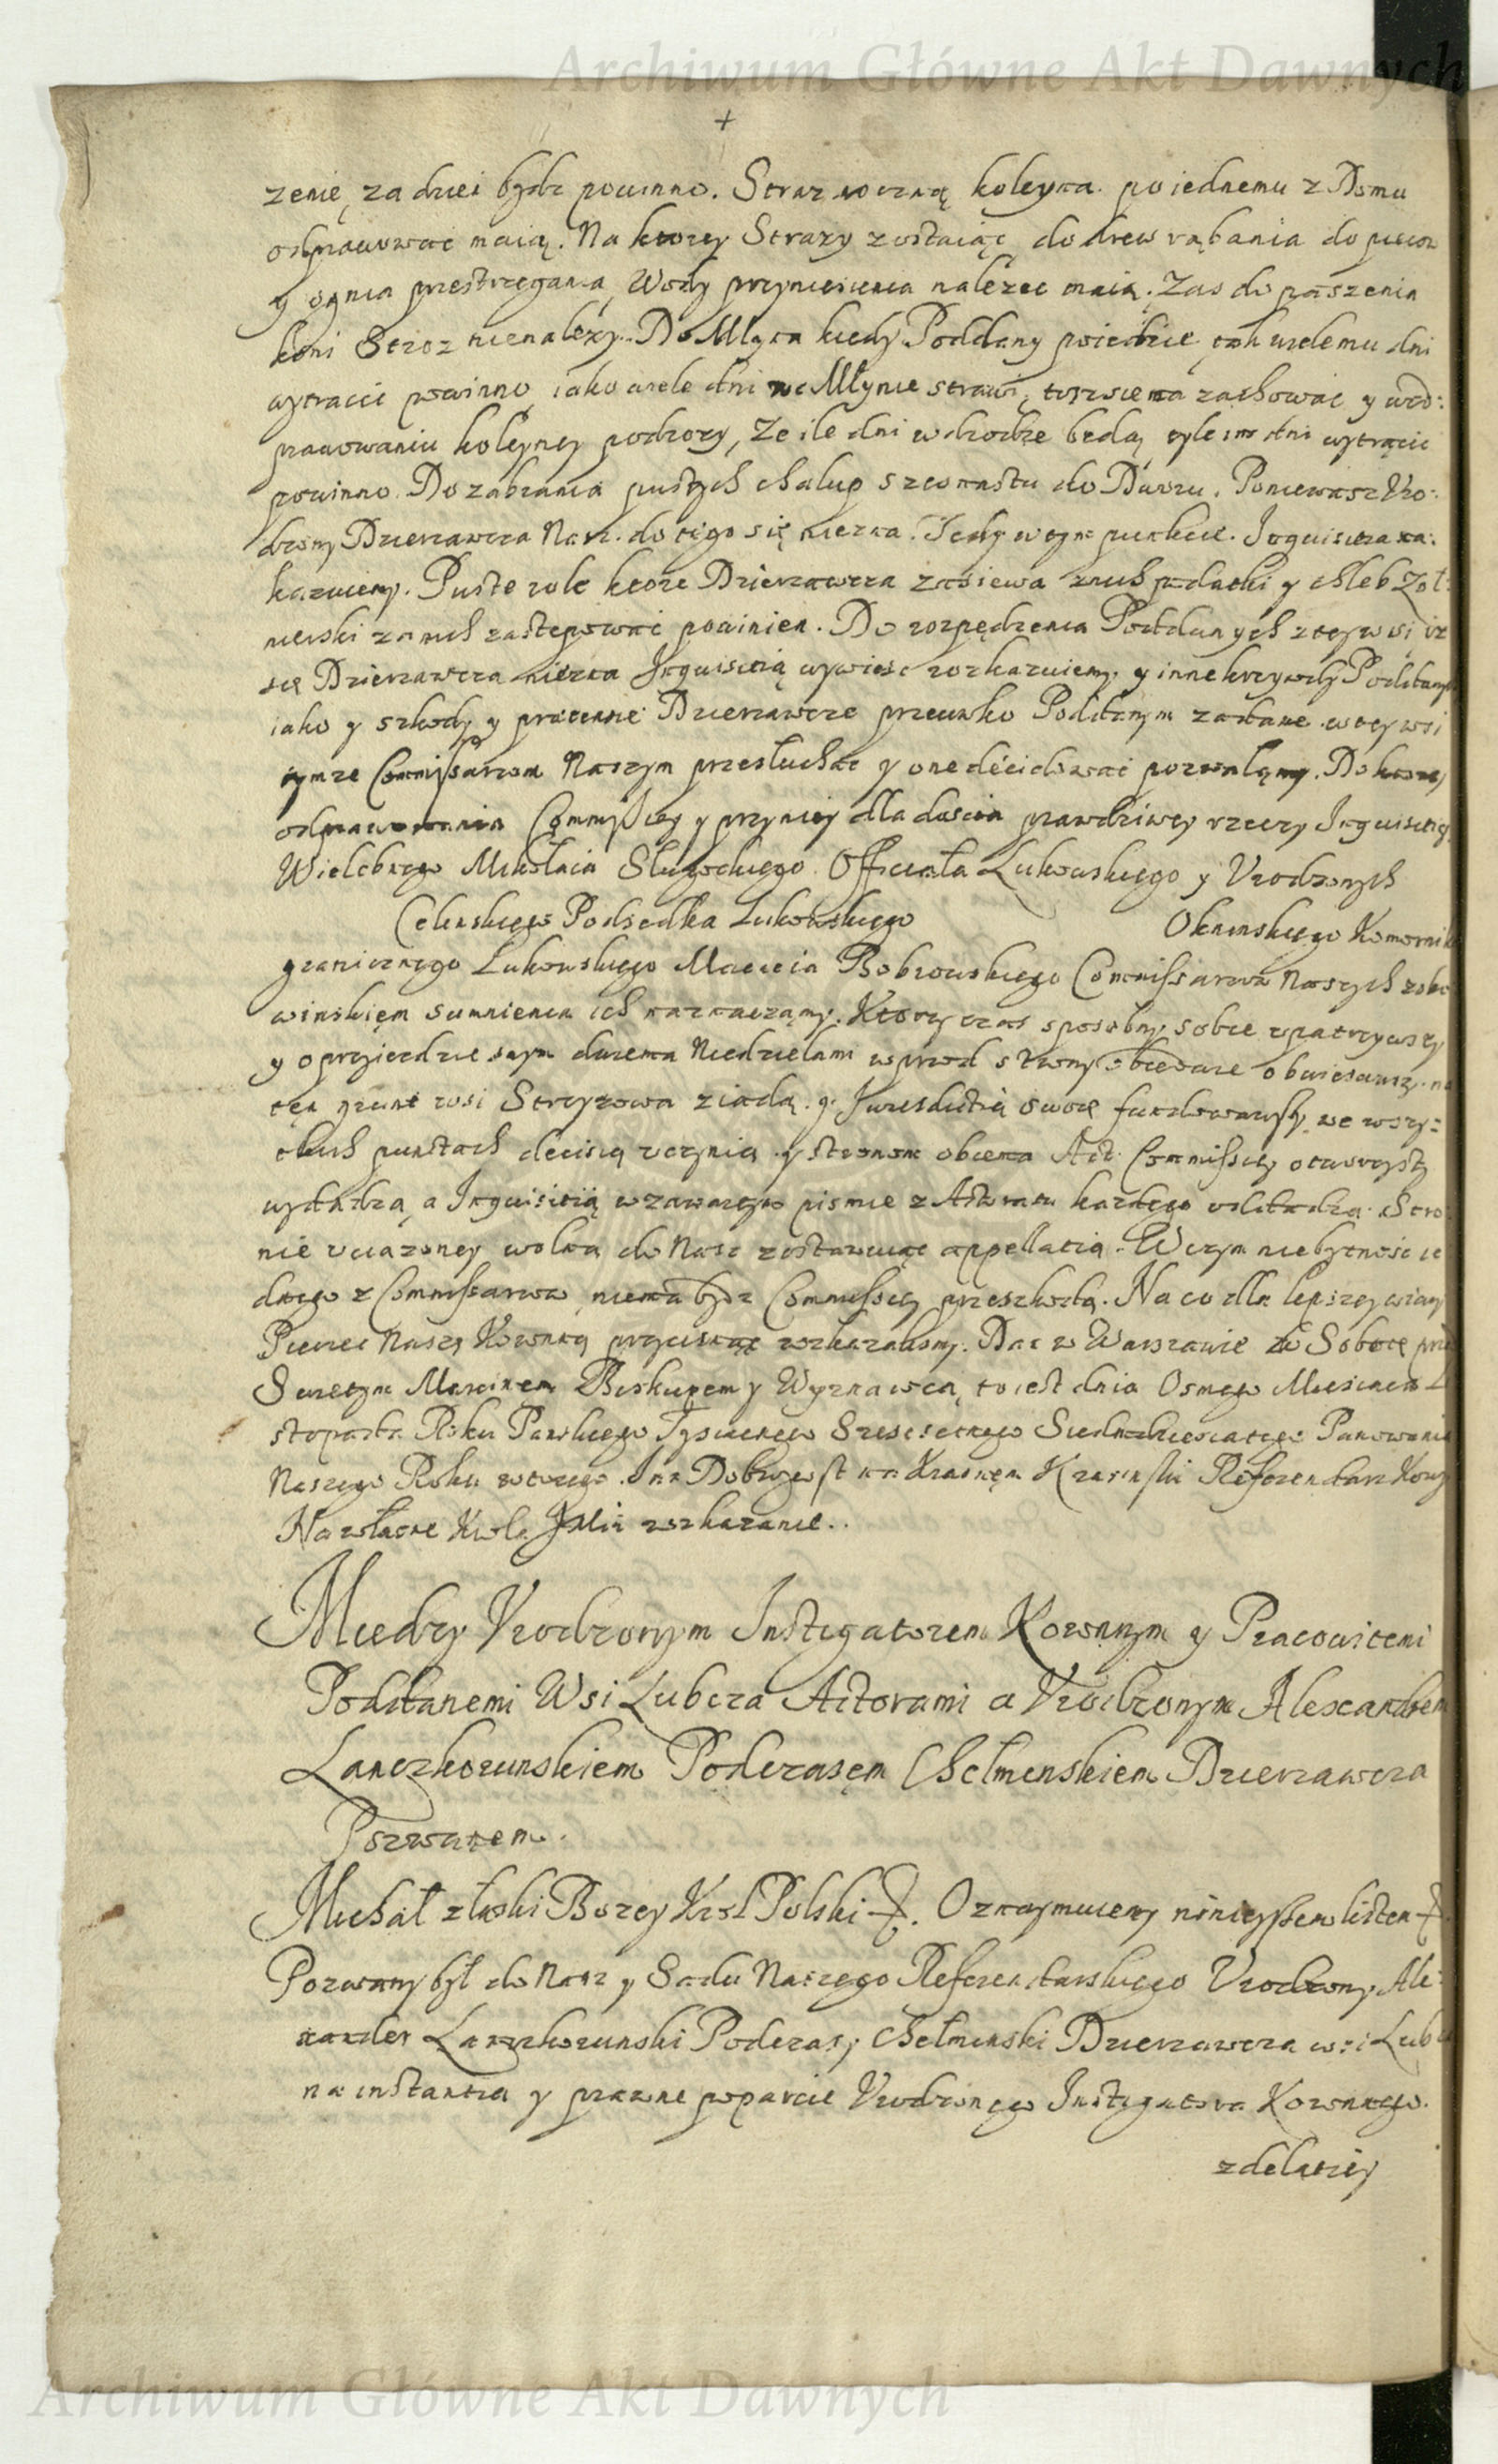 Archiwum Główne Akt Dawnych
+
zenię, za dzień bydz powinno. Straz nocną koleyną po iednemu z Domu
odprawować maią. Na ktorey Strazy zostaiąc, do drew rąbania do piecow
y ognia przestrzegania, Wody przyniesienia nalezec maią. Zas do paszenia
koni Stroz nienalezy. Do Młyna kiedy Poddany poiedzie, tak wielemu dni
wytracic powinno, iako wiele dni we Młynie strawi, toz sie ma zachowac y w od:
prawowaniu koleyney podrozy, Ze ile dni w drodze będą, tyle im dni wytrącic
powinno. Do zabrania pustych chalup szesnastu do Dworu. Poniewasz Vro:
dzony Dzierzawca Nasz. do tego się niezna. Tedy w tym punkcie. Inquisitią na:
kazuiemy. Puste role ktore Dzierzawca zasiewa z nich podatki y chleb Zoł:
nierski z nich zastępowac powinien. Do rozpędzenia Poddanych z tey wsi iz
się Dzierzawca niezna Inquisitią wywiesc rozkazuiemy. y inne krzywdy Poddanych
iako y szkody y pretensie Dzierzawcze przeciwko Poddanym zadane w tey wsi
tymze Commissarzom Naszym przesłuchac y one decidowac pozwalamy. Do ktorey
odprawowania Commissiey y przyniey dla doscia prawdziwey rzeczy Inquisitiey
Wielebnego Mikołaia Sługockiego Officiała Lukowskiego y Vrodzonych
Celinskiego Podsędka Lukowskiego Okninskiego Komornika
granicznego Lukowskiego Macieia Bobrowskiego Commissarzow Naszych zobo
winskięm sumnienia ich naznaczamy. Ktorzy czas sposobny sobie vpatrzywszy
y o przyiezdzie swym dwiema Niedzielami wprzod strony obiedwie obwiesciwszy. na
ten grunt wsi Strzyzowa ziadą. y. Iurisdictią swoię fundowawszy, we wszy:
stkich punctach decisią vczynią. y stronom obiema Act Commissiey otworzysty
wydadzą, a Inquisitią w zawartym pismie z Aktoratu kazdego oddadzą. Stro:
nie vciązoney wolną do Nasz zostawuiąc appellatią. W czym niebytnosc ie
dnego z Commissarzow niema bydz Commissiey przeszkodą. Na co dla lepszey wiary
Pieczęc Naszą Koronną przycisnąc rozkazalismy. Dat w Warszawie w Sobotę przed
Swietym Marcinem Biskupem y Wyznawcą, to iest dnia Osmego Miesiąca Li
stopada Roku Panskiego Tysiącnego Szescsetnego Siedmdziesiątego Panowania
Naszego Roku wtorego. Jan Dobrogost na Krasnem Krasinski Referendarz Kony
Na własne Krola JMci rozkazanie..
Miedzy Vrodzonym Instigatorem Koronnym y Pracowitemi
Poddanemi Wsi Lubcza Actorami a Vrodzonym Alexandrem
Lanczkorunskiem Podczaszem Chelminskiem Dzierzawcza
Pozwanem.
Michał z łaski Bozey Krol Polski &. Oznaymuiemy ninieyszem listem &.
Pozwany był do Nasz y Sadu Naszego Referendarskiego Vrodzony Ale:
xander Lanczkorunski Podczaszy Chelminski Dzierzawcza wsi Lubcza
na instantia y prawne poparcie Vrodzonego Instigatora Koronnego.
z delatiey
Archiwum Główne Akt Dawnych